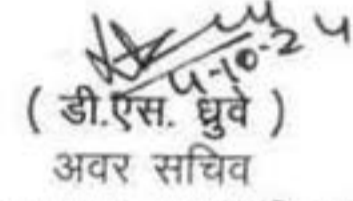 4-10-24
( डी.एस. ध्रुवे )
अवर सचिव